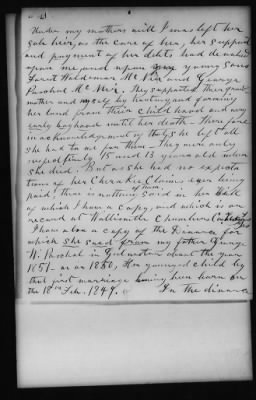 Under my mothers will I was left her
sole heir, as the care of her, her support
and payment of her debts had devolved
upon me and upon my young sons
Waldemar Mc Nir and George
Paschal Mc Nir. They supported their grand-
mother and myself by hauling and farming
her land from their child hood and very
early boyhood until her death - There fore
in acknowledgment of that, she left all
she had to me for them - They were only
respectfully, 15 and 13 years old when
she died. But as she had no expecta-
tions of her Cherokee Claims ever being
paid, there is nothing of them, said in her Will
of which I have a copy, and which is on
record at
I have also a copy of the Divorce for
which she sued from my father George
W. Paschal in Galveston about the year
1851 - or on 1850, Her youngest child by
that first marriage having been born on
the 18th Feb. 1847. In the divorce